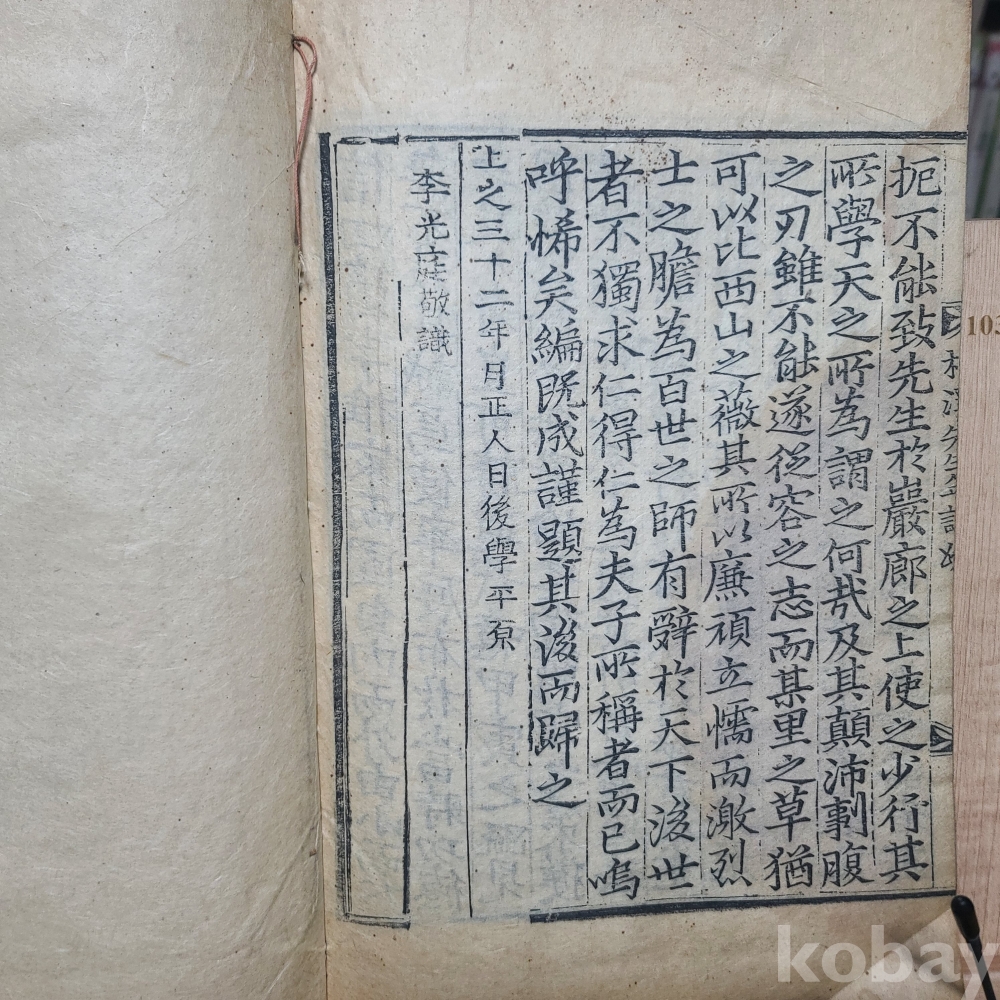 扼不能致先生於巖廊之上使之少行其
所學天之所爲謂之何哉及其顛沛剚腹
之刃雖不能遂從容之志而某里之草猶
可以比西山之薇其所以廉頑立懦而激烈
士之膽爲百世之師有辭於天下後世
者不獨求仁得仁爲夫子所稱者而已嗚
呼悕矣編旣成謹題其後而歸之
上之三十二年月正人日後學平原
李光庭敬識
先生
10
kobay